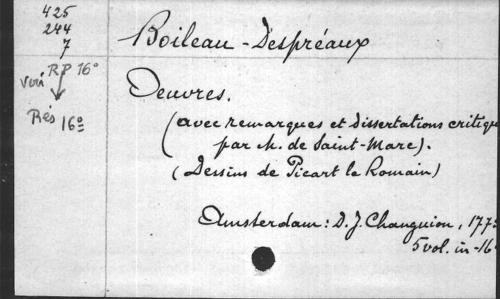 425
244
7
RP 16°
Rés 16°
Boileau-Despréaux
Oeuvres.
(avec remarques et dissertations critiqu
par M. de Saint-Marc).
(Dessins de Picart le Romain)
Amsterdam: D. J. Changuion, 177
5 vol. in-16